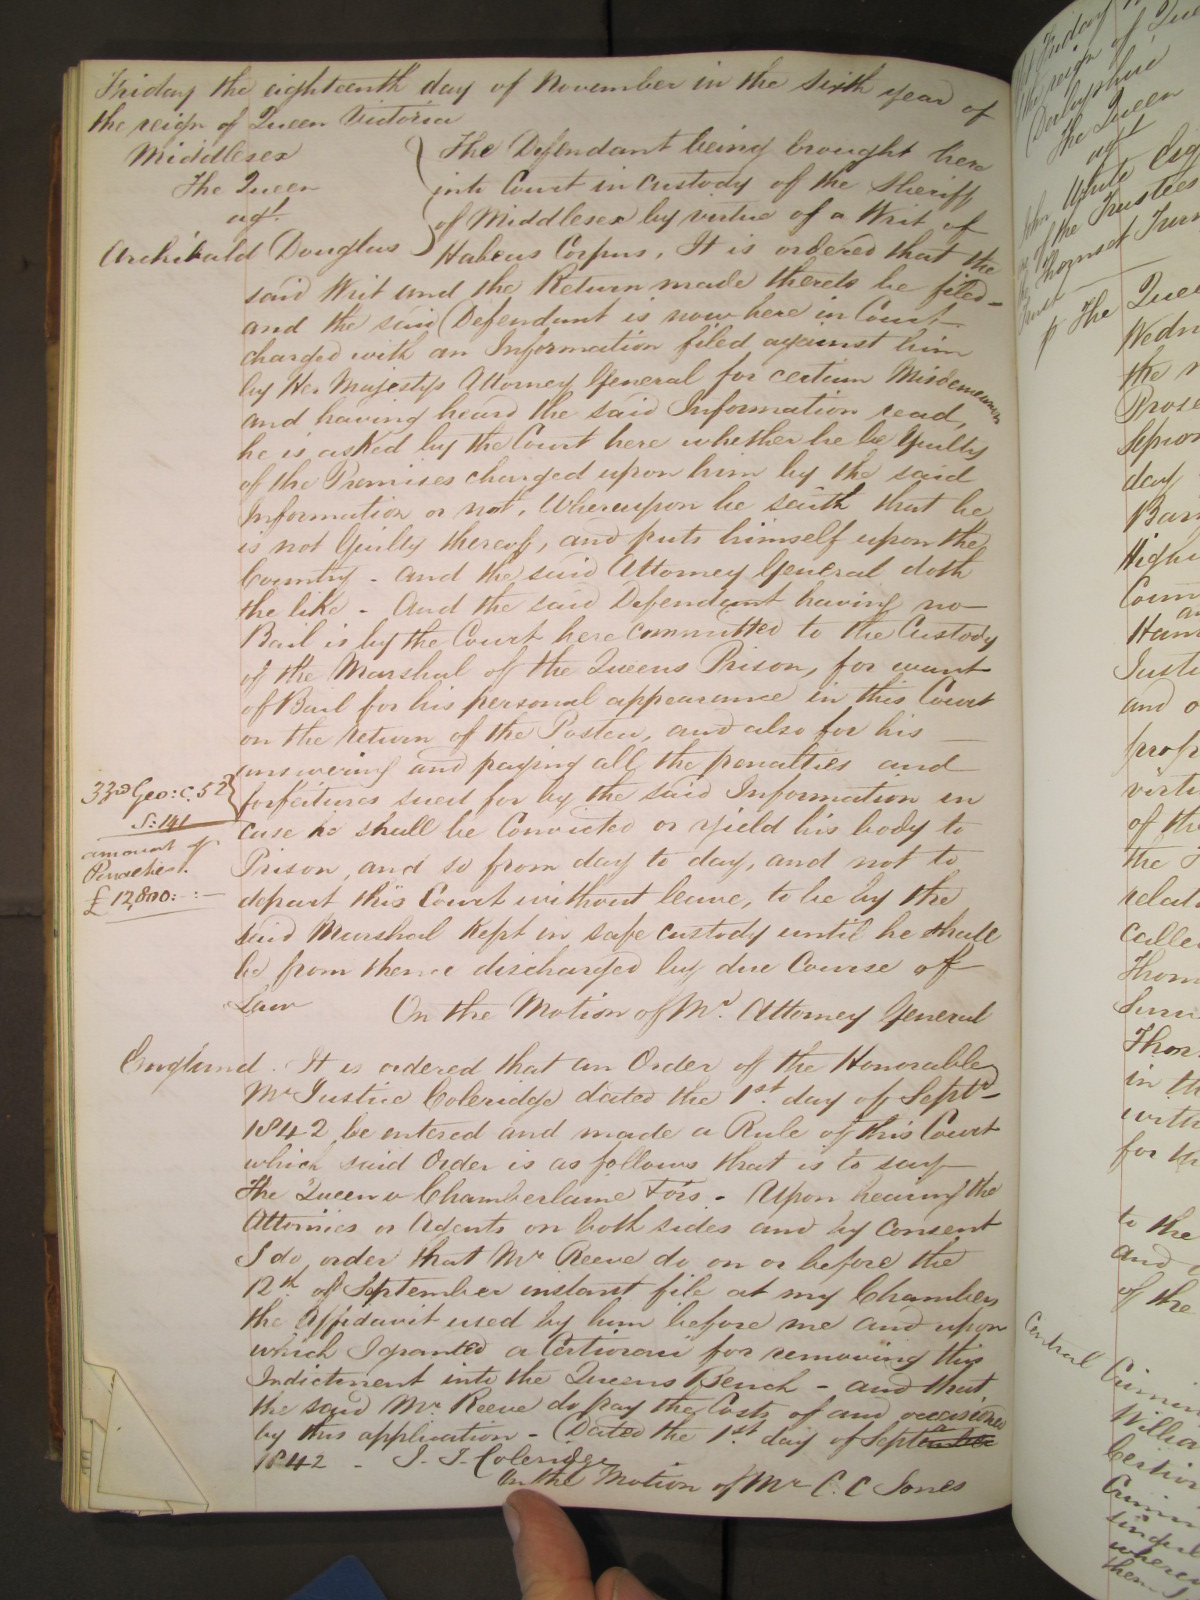 Friday the eighteenth day of November in the sixth year of
the reign of Queen Victoria
Middlesex
The Queen
agt.
Archibald Douglas
The Defendant being brought here
into Court in custody of the Sheriff
of Middlesex by virtue of a Writ of
Habeas Corpus. It is ordered that the
said Writ and the Return made thereto be filed
and the said Defendant is now here in Court
charged with an Information filed against him
by Her Majestys Attorney General for certain Misdemeanors
and having heard the said Information read,
he is asked by the Court here whether he be Guilty
of the Premises charged upon him by the said
Information or not. Whereupon he saith that he
is not Guilty thereof, and puts himself upon the
Country - And the said Attorney General doth
the like - And the said Defendant having no
Bail is by the Court here committed to the Custody
of the Marshal of the Queens Prison, for want
of Bail for his personal appearance in this Court
on the return of the Postea, and also for his
answering and paying all the penalties and
forfeitures sued for by the said Information in
case he shall be Convicted or yield his body to
Prison, and so from day to day, and not to
depart this Court without leave, to be by the
said Marshal kept in safe custody until he shall
be from thence discharged by due Course of
Law
On the Motion of Mr. Attorney General
33rd Geo: C. 52
S: 141
amount of
Penalties.
£12,800:-:-
England. It is ordered that an Order of the Honorable
Mr Justice Coleridge dated the 1st. day of Septr.
1842 be entered and made a Rule of this Court
which said Order is as follows that is to say
The Queen v Chamberlaine & ors. - Upon hearing the
Attornies or Agents on both sides and by consent
I do order that Mr Reeve do on or before the
12th. of September instant file at my Chambers
the Affidavit used by him before me and upon
which I granted a Certiorari for removing this
Indictment into the Queens Bench - and that
the said Mr. Reeve do pay the Costs of and occasioned
by this application - Dated the 1st. day of September
1842 - J. T. Coleridge
On the Motion of Mr C. C Jones
The Queen
agt
White Esq
of the Trustees
p The Quee
day
of the
with
to the
of the
Central